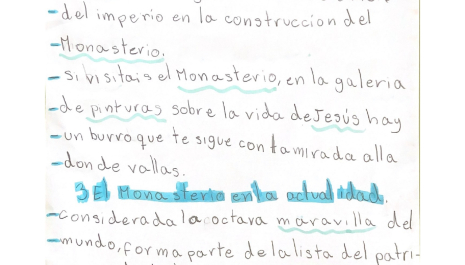 -del imperio en la construccion del
-Monasterio.
- si visitais el Monasterio, en la galeria
-de pinturas sobre la vida de Jesús hay
-un burro que te sigue con la mirada alla
-donde vallas.
3 El Monasterio en la actualidad.
-Considerada la octava maravilla del
-mundo, forma parte de la lista del patri-